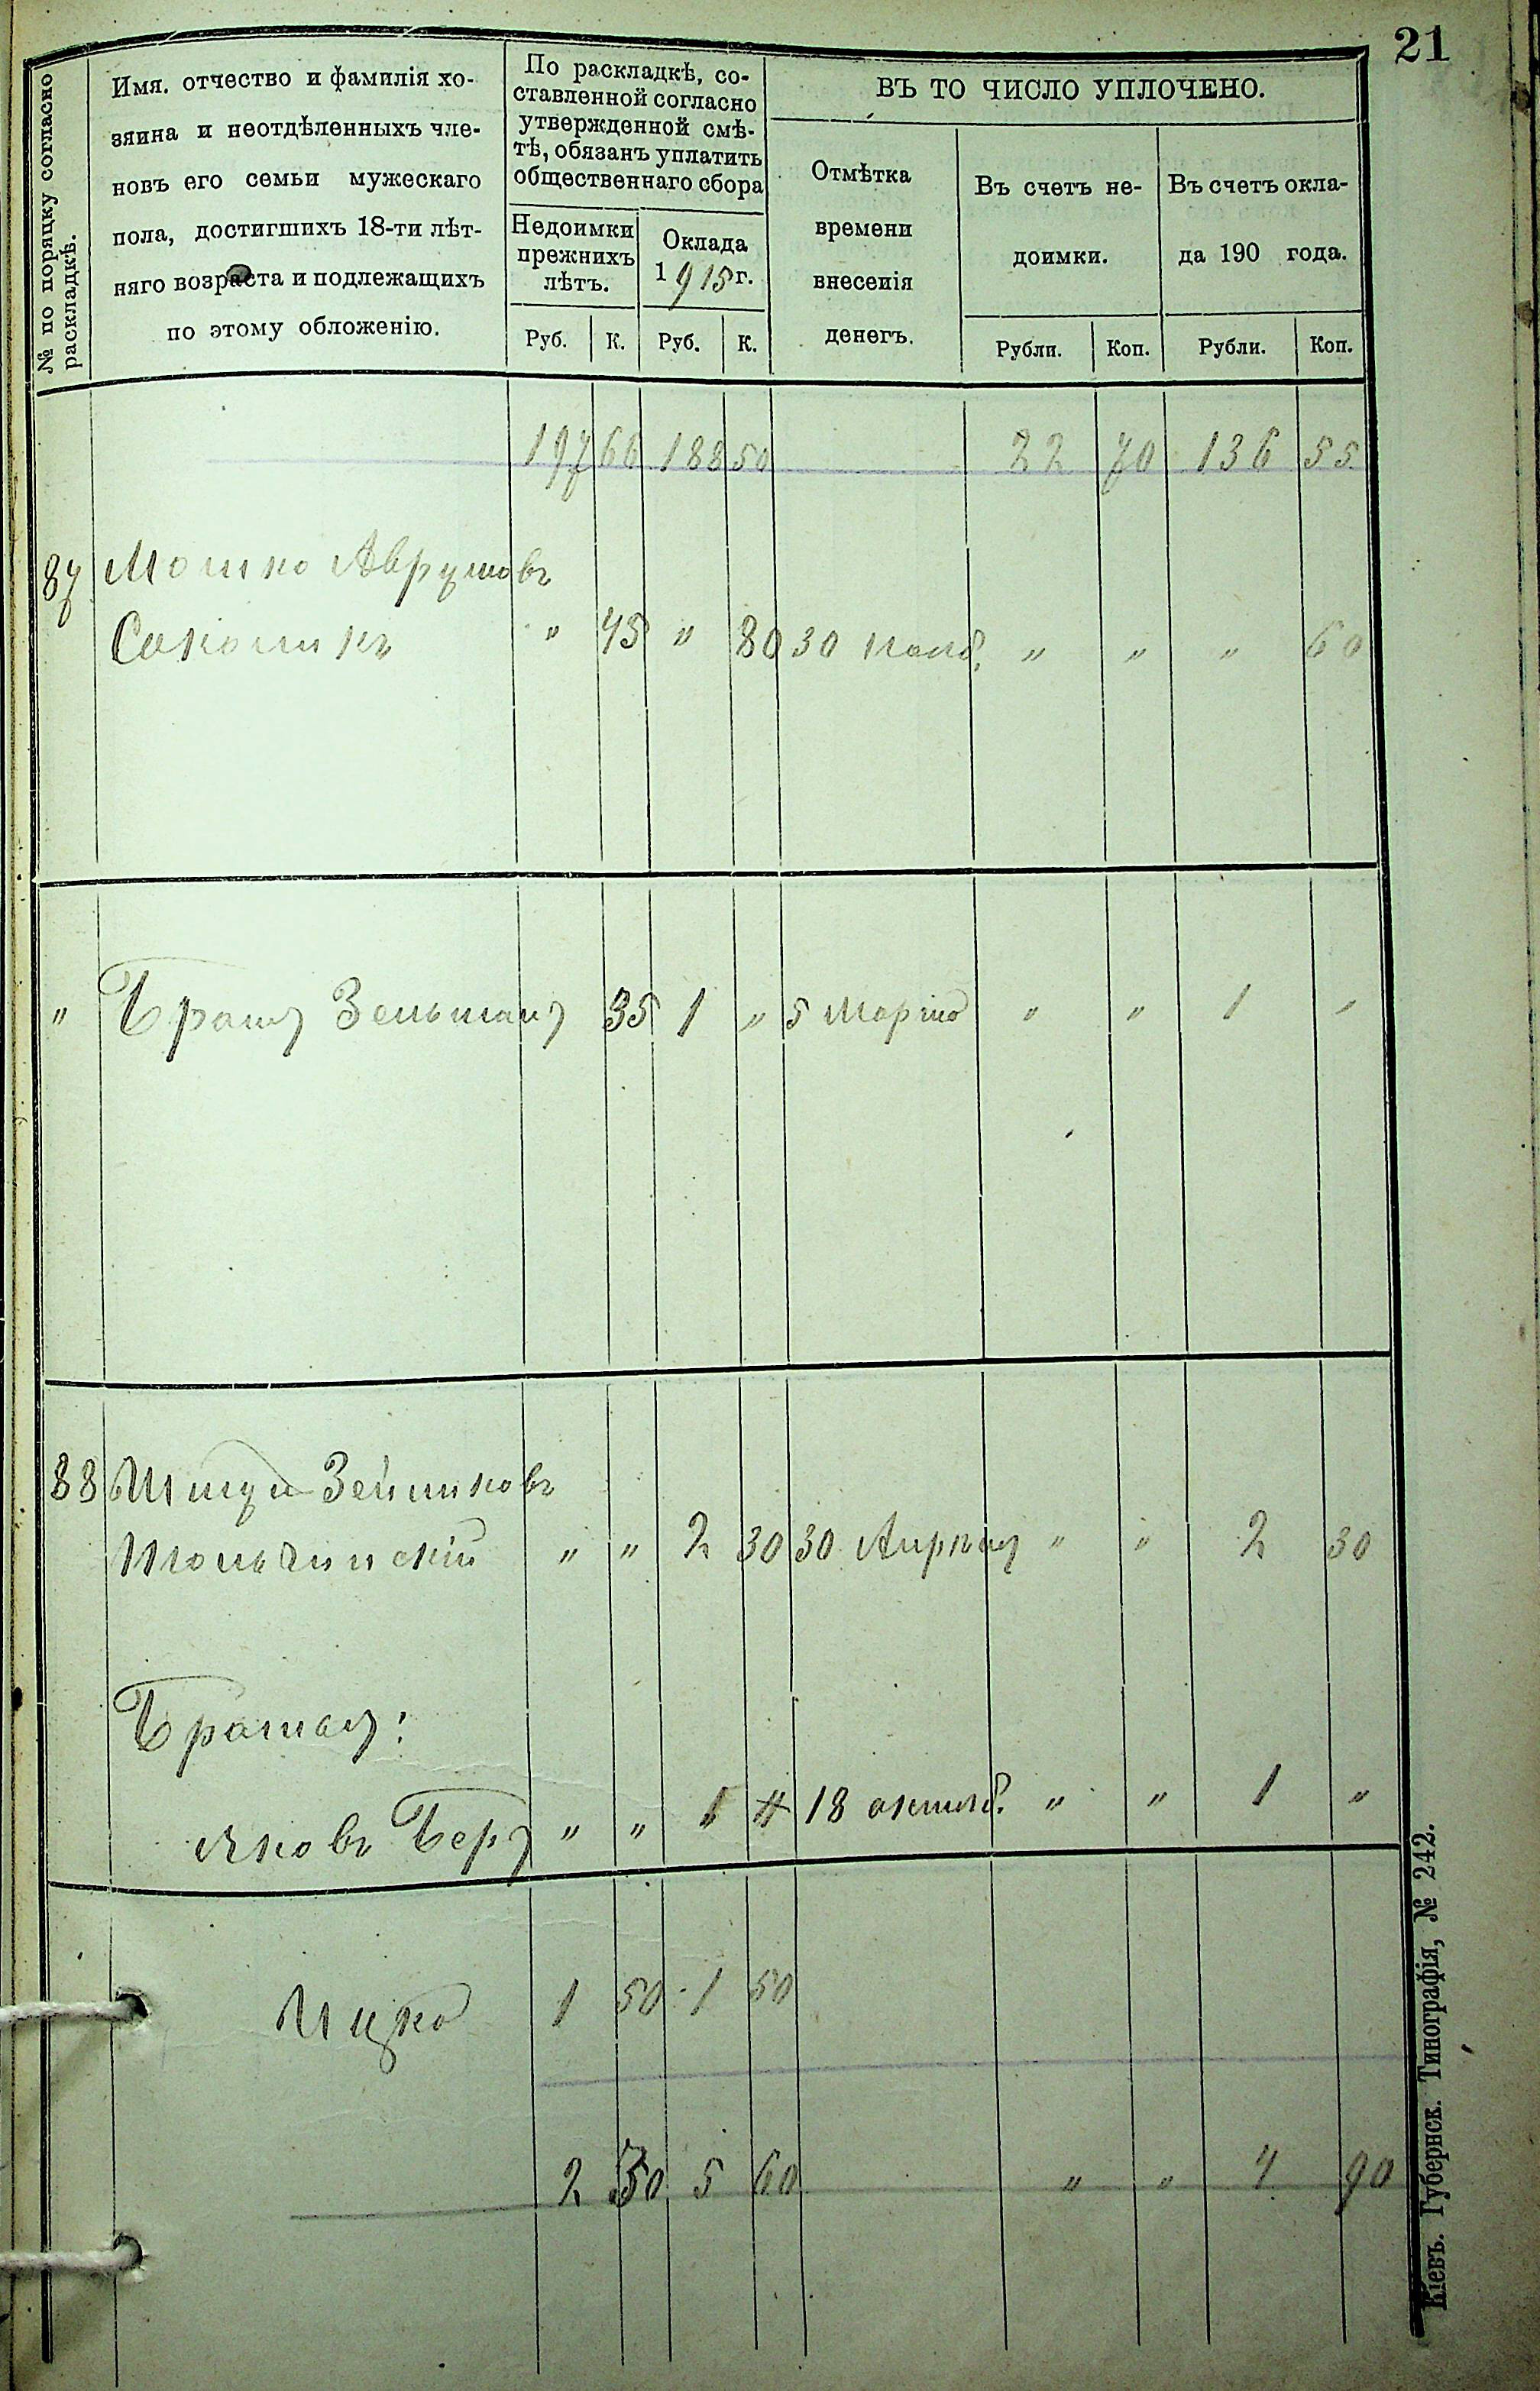 21
№ по поряцку согласно раскладкѣ.
Имя. отчество и фамилія хо-
зяина и неотдѣленныхъ чле-
новъ его семьи мужескаго
пола, достигшихъ 18-ти лѣт-
няго возраста и подлежащихъ
по этому обложенію.
По раскладкѣ, со-
ставленной согласно
утвержденной смѣ-
тѣ, обязанъ уплатить
общественнаго сбора
Недоимки
прежнихъ
лѣтъ.
Оклада
1915 г.
Руб. К. Руб. К.
ВЪ ТО ЧИСЛО УПЛОЧЕНО.
Отмѣтка
времени
внесенія
денегъ.
Въ счетъ не-
доимки.
Въ счетъ окла-
да 190 года.
Рубли. Коп. Рубли. Коп.
197 66 188 50 22 70 136 55
87 Мошко Аврумовъ
" 45 " 80 30 нояб. " " " 60
" Братъ Зельманъ 35 1 " 5 Марта " " 1 "
88 Зейликовъ
" " 2 30 30 Апрѣля " " 2 30
Братья:
Яковъ Беръ " " 1 " 18 октяб. " " 1 "
Ицко 1 50 1 50
2 30 5 60 " " 4 90
Кіевъ. Губернск. Типографія, № 242.